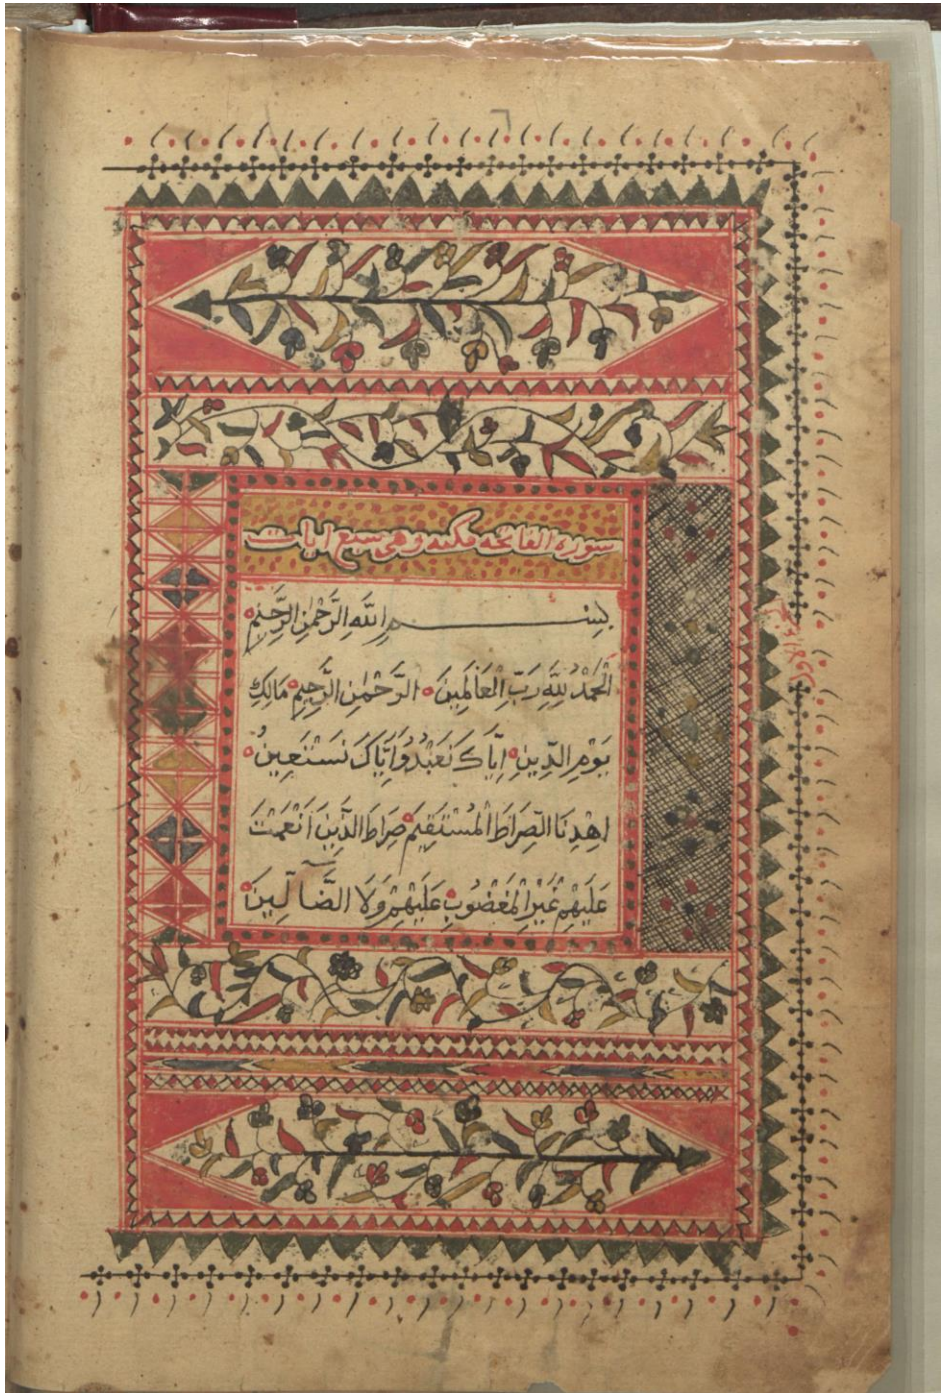 سورة الفاتحة مكية وهي سبع ايات
بِسْمِ اللَّهِ الرَّحْمٰنِ الرَّحِيمِ
اَلْحَمْدُ لِلّٰهِ رَبِّ الْعَالَمِينَ الرَّحْمٰنِ الرَّحِيمِ مَالِكِ
يَوْمِ الدِّينِ اِيَّاكَ نَعْبُدُ وَاِيَّاكَ نَسْتَعِينُ
اِهْدِنَا الصِّرَاطَ الْمُسْتَقِيمَ صِرَاطَ الَّذِينَ اَنْعَمْتَ
عَلَيْهِمْ غَيْرِ الْمَغْضُوبِ عَلَيْهِمْ وَلَا الضَّآلِّينَ
الاول